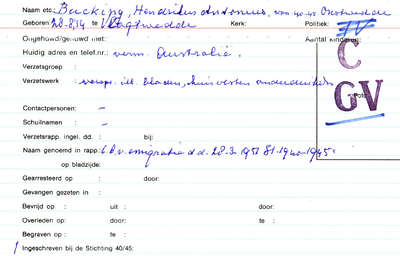 Naam etc. Backing, Hendrikus Antonius, won. 40-45 Onstwedde
Geboren 28-8-14 te Vlagtwedde Kerk: Politiek:
Ongehuwd/gehuwd met: Aantal kinderen:
Huidig adres en telef.nr.: verm. Australië.
C
Verzetsgroep :
Verzetswerk : versp. ill. bladen, huisvesten onderduikers
GV
Contactpersonen: –
Schuilnamen : –
Verzetsrapp. ingel. dd. : bij:
Naam genoemd in rapp: i.v. emigratie d.d. 28-3-1951 1940-1945
op bladzijde:
Gearresteerd op : door:
Gevangen gezeten in :
Bevrijd op : uit : door:
Overleden op: door: te :
Begraven op : te :
Ingeschreven bij de Stichting 40/45: